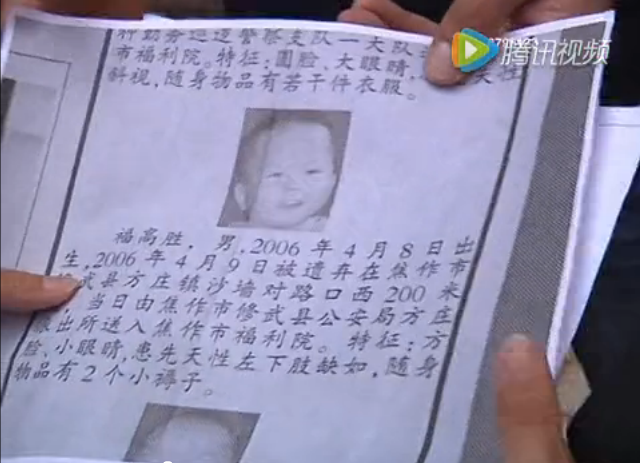 种勤务巡逻警察支队一大队
市福利院。特征：圆脸、大眼睛，
天性
斜视，随身物品有若干件衣服。
腾讯视频
福高胜，男，2006年4月8日出
生，2006年4月9日被遗弃在焦作市
武县方庄镇沙墙对路口西200米
，当日由焦作市修武县公安局方庄
派出所送入焦作市福利院。特征：方
脸、小眼睛，患先天性左下肢缺如，随身
物品有2个小褥子。